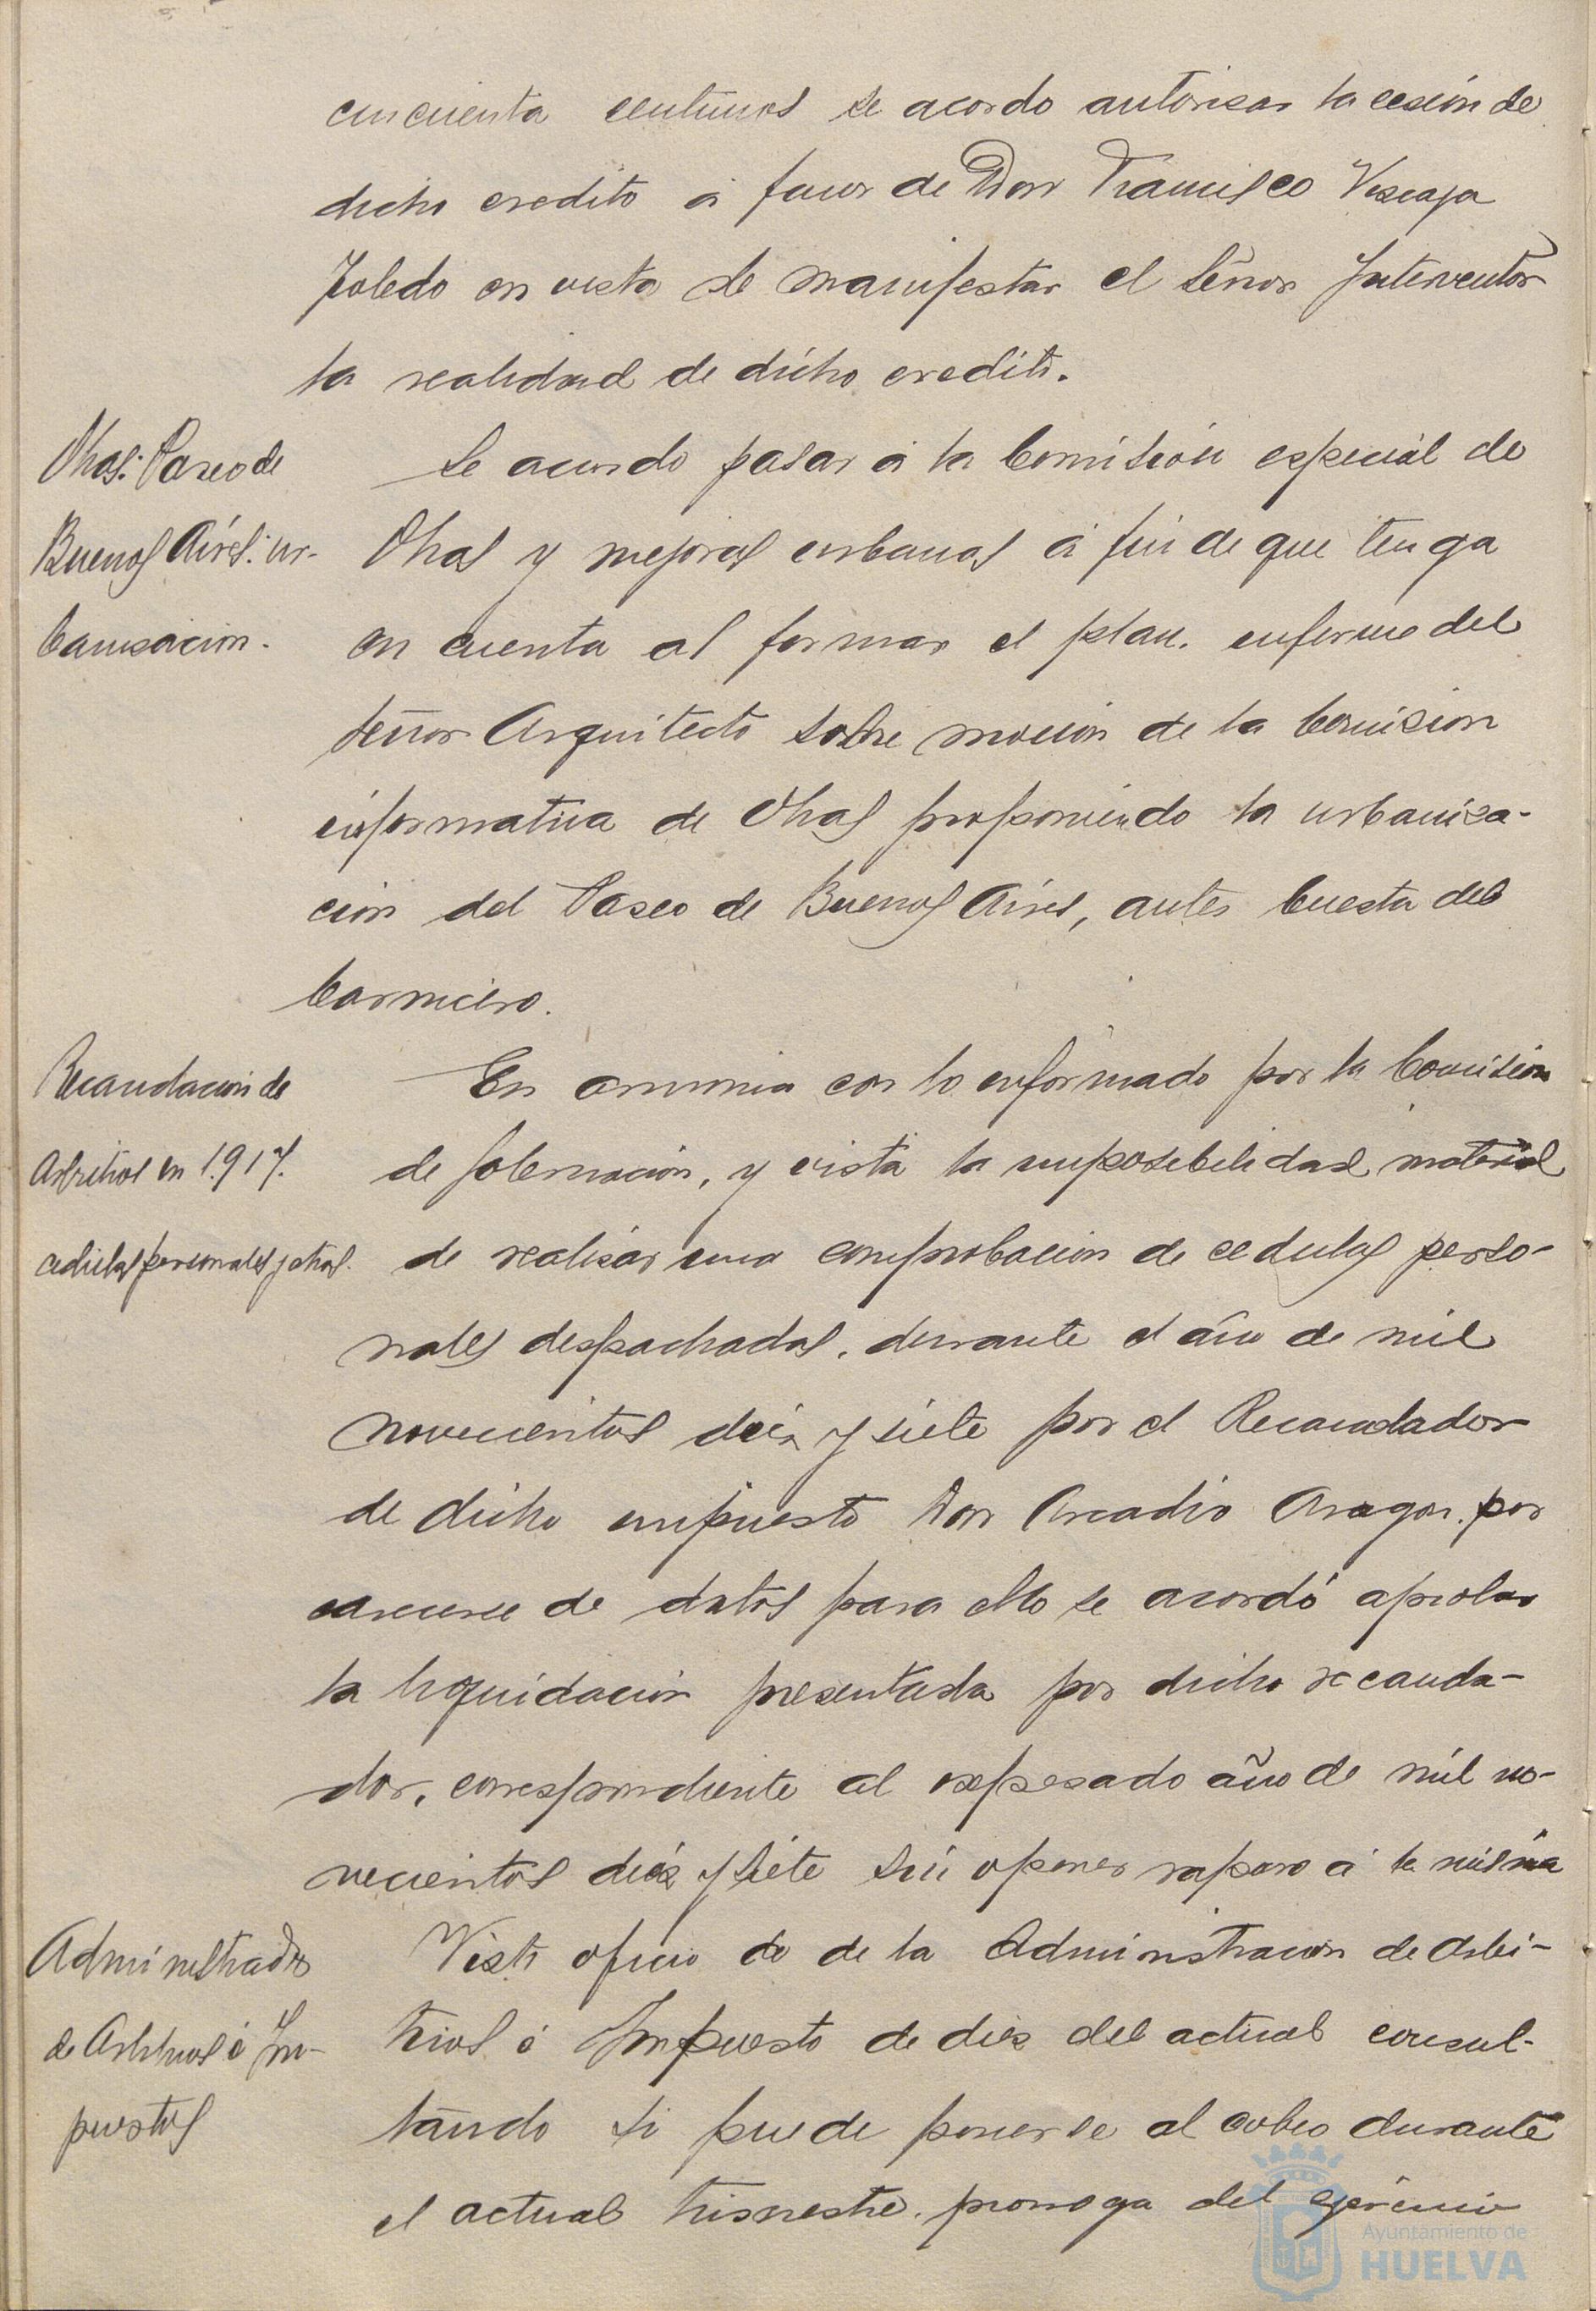 cincuenta centimos se acordo autorisar la cesión de
dicho credito á favor de Don Francisco Vizcaya
Toledo en vista de manifestar el Señor Interventor
la realidad de dicho credito.
Obras: Paseo de
Buenos Aires: ur-
banisacion.
Se acuerdo pasar á la Comisión especial de
Obras y mejoras urbanas á fin de que tenga
en cuenta al formar el plan. informe del
Señor Arquitecto sobre mocion de la Comision
informativa de Obras proponiendo la urbaniza-
cion del Paseo de Buenos Aires, antes Cuesta del
Carnicero.
Recaudacion de
Arbitrios en 1.917.
cedulas personales y otras.
En armonia con lo informado por la Comision
de Gobernacion, y vista la imposibilidad material
de realisar una comprobacion de cedulas perso-
nales despachadas. durante el año de mil
novecientos diez y siete por el Recaudador
de dicho impuesto Don Arcadio Aragon. por
carecerse de datos para ello se acordó aprobar
la liquidacion presentada por dicho recauda-
dor. correspondiente al expresado año de mil no-
vecientos diez y siete sin oponer reparo á la misma
Administrador
de Arbitrios é Im-
puestos
Visto oficio de de la Administracion de Arbi-
trios é Impuesto de diez del actual consul-
tando si puede ponerse al cobro durante
el actual trismestre. prorroga del ejercicio
Ayuntamiento de
HUELVA